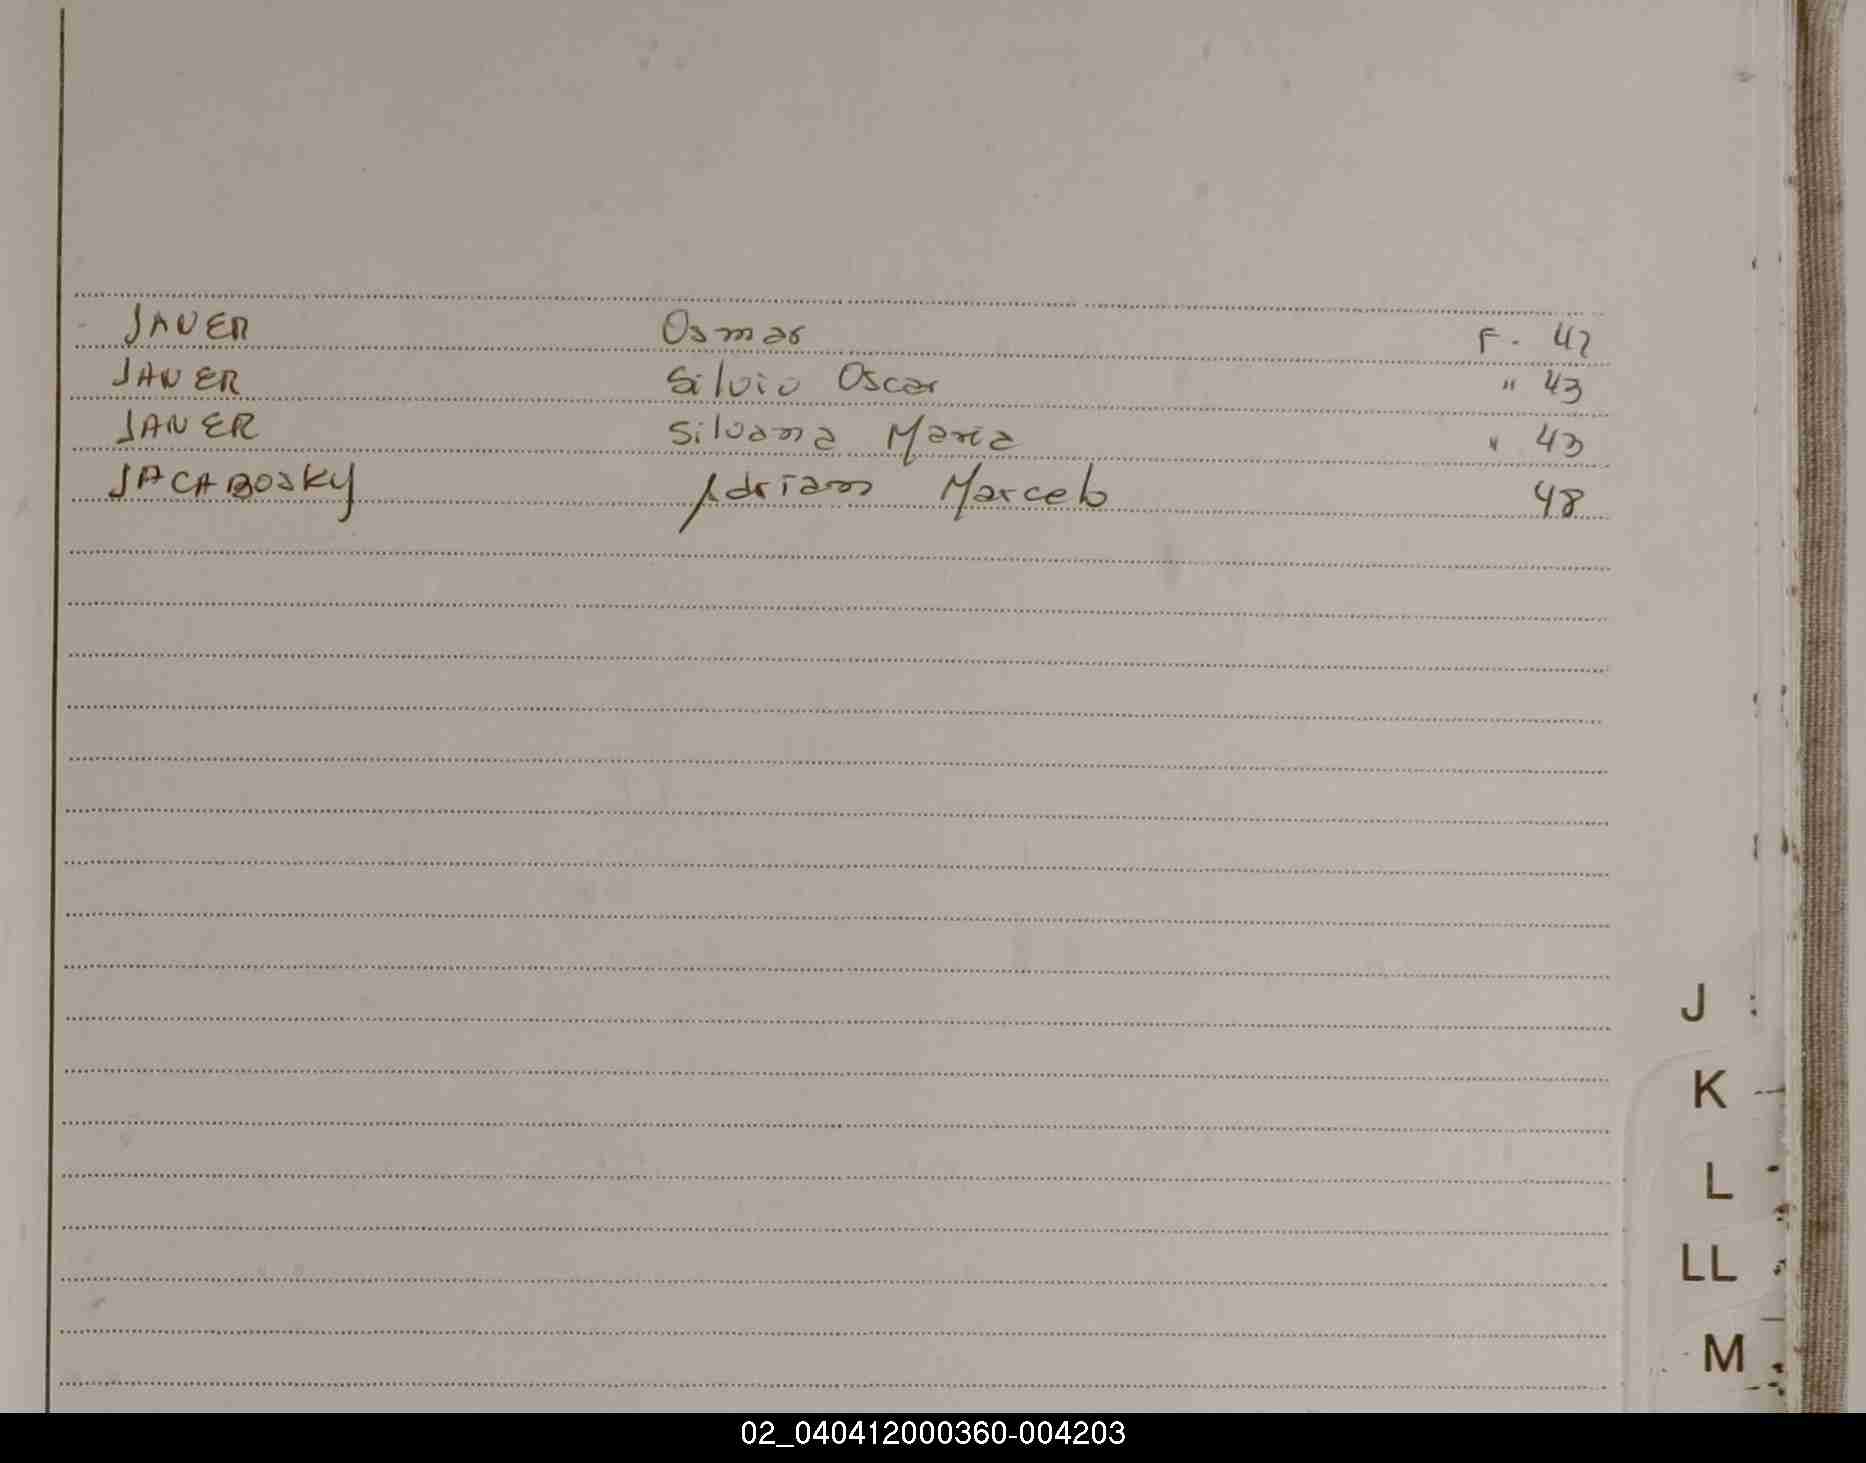 JANER Osmar F. 42
JANER Silvio Oscar " 43
JANER Silvana Maria " 43
JACABOSKY Adrian Marcelo 48
J
K
L
LL
M
02_040412000360-004203